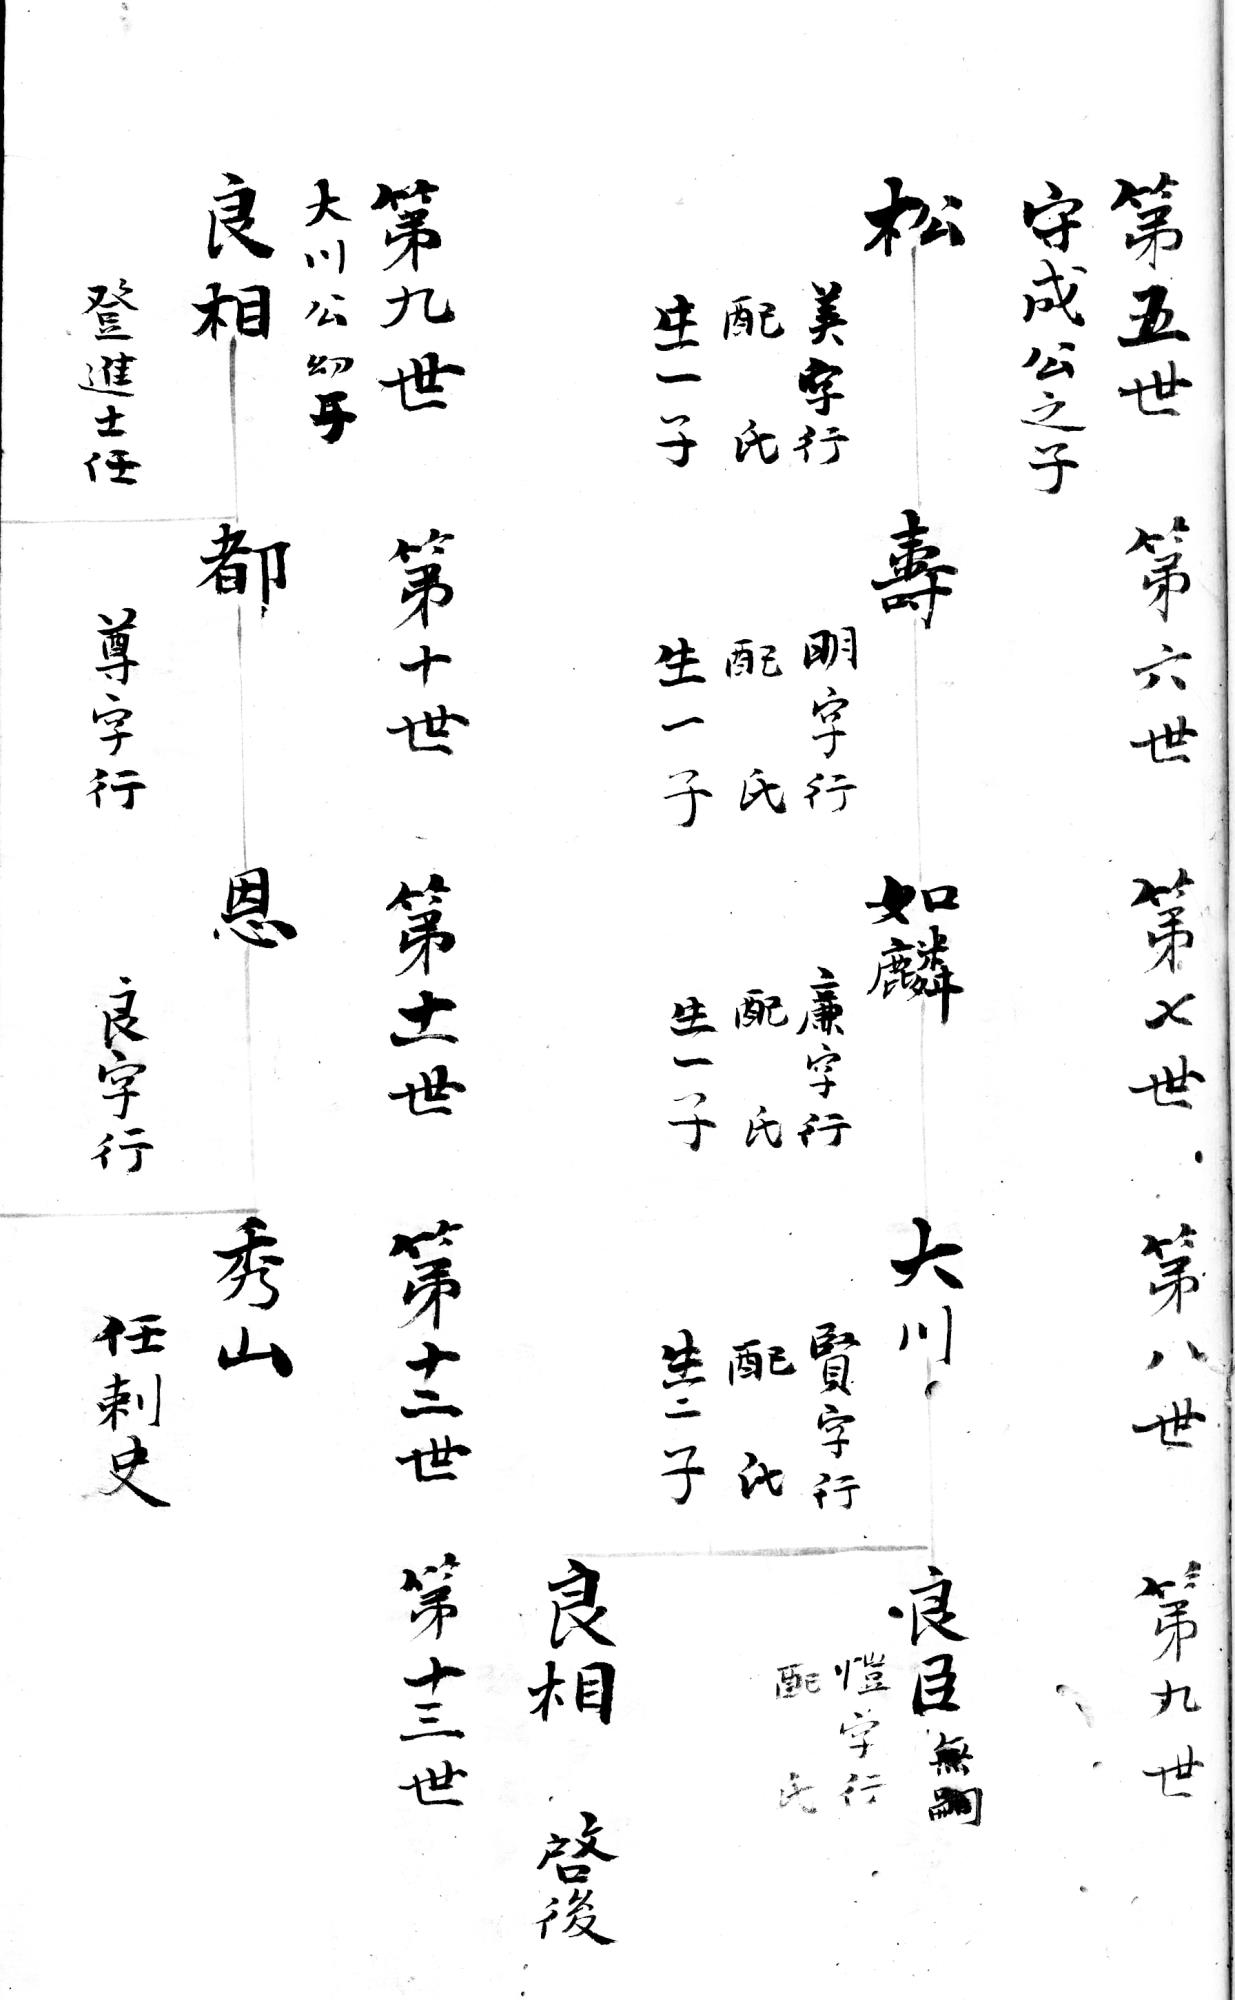 第五世
第六世
第七世
第八世
第九世
守成公之子
松
美字行
配氏
生一子
壽
明字行
配氏
生一子
如麟
廉字行
配氏
生一子
大川
賢字行
配氏
生二子
良臣
無嗣
愷字行
配氏
良相
啓後
第九世
第十世
第十一世
第十二世
第十三世
大川公幼子
良相
登進士任
都
尊字行
恩
良字行
秀山
任刺史